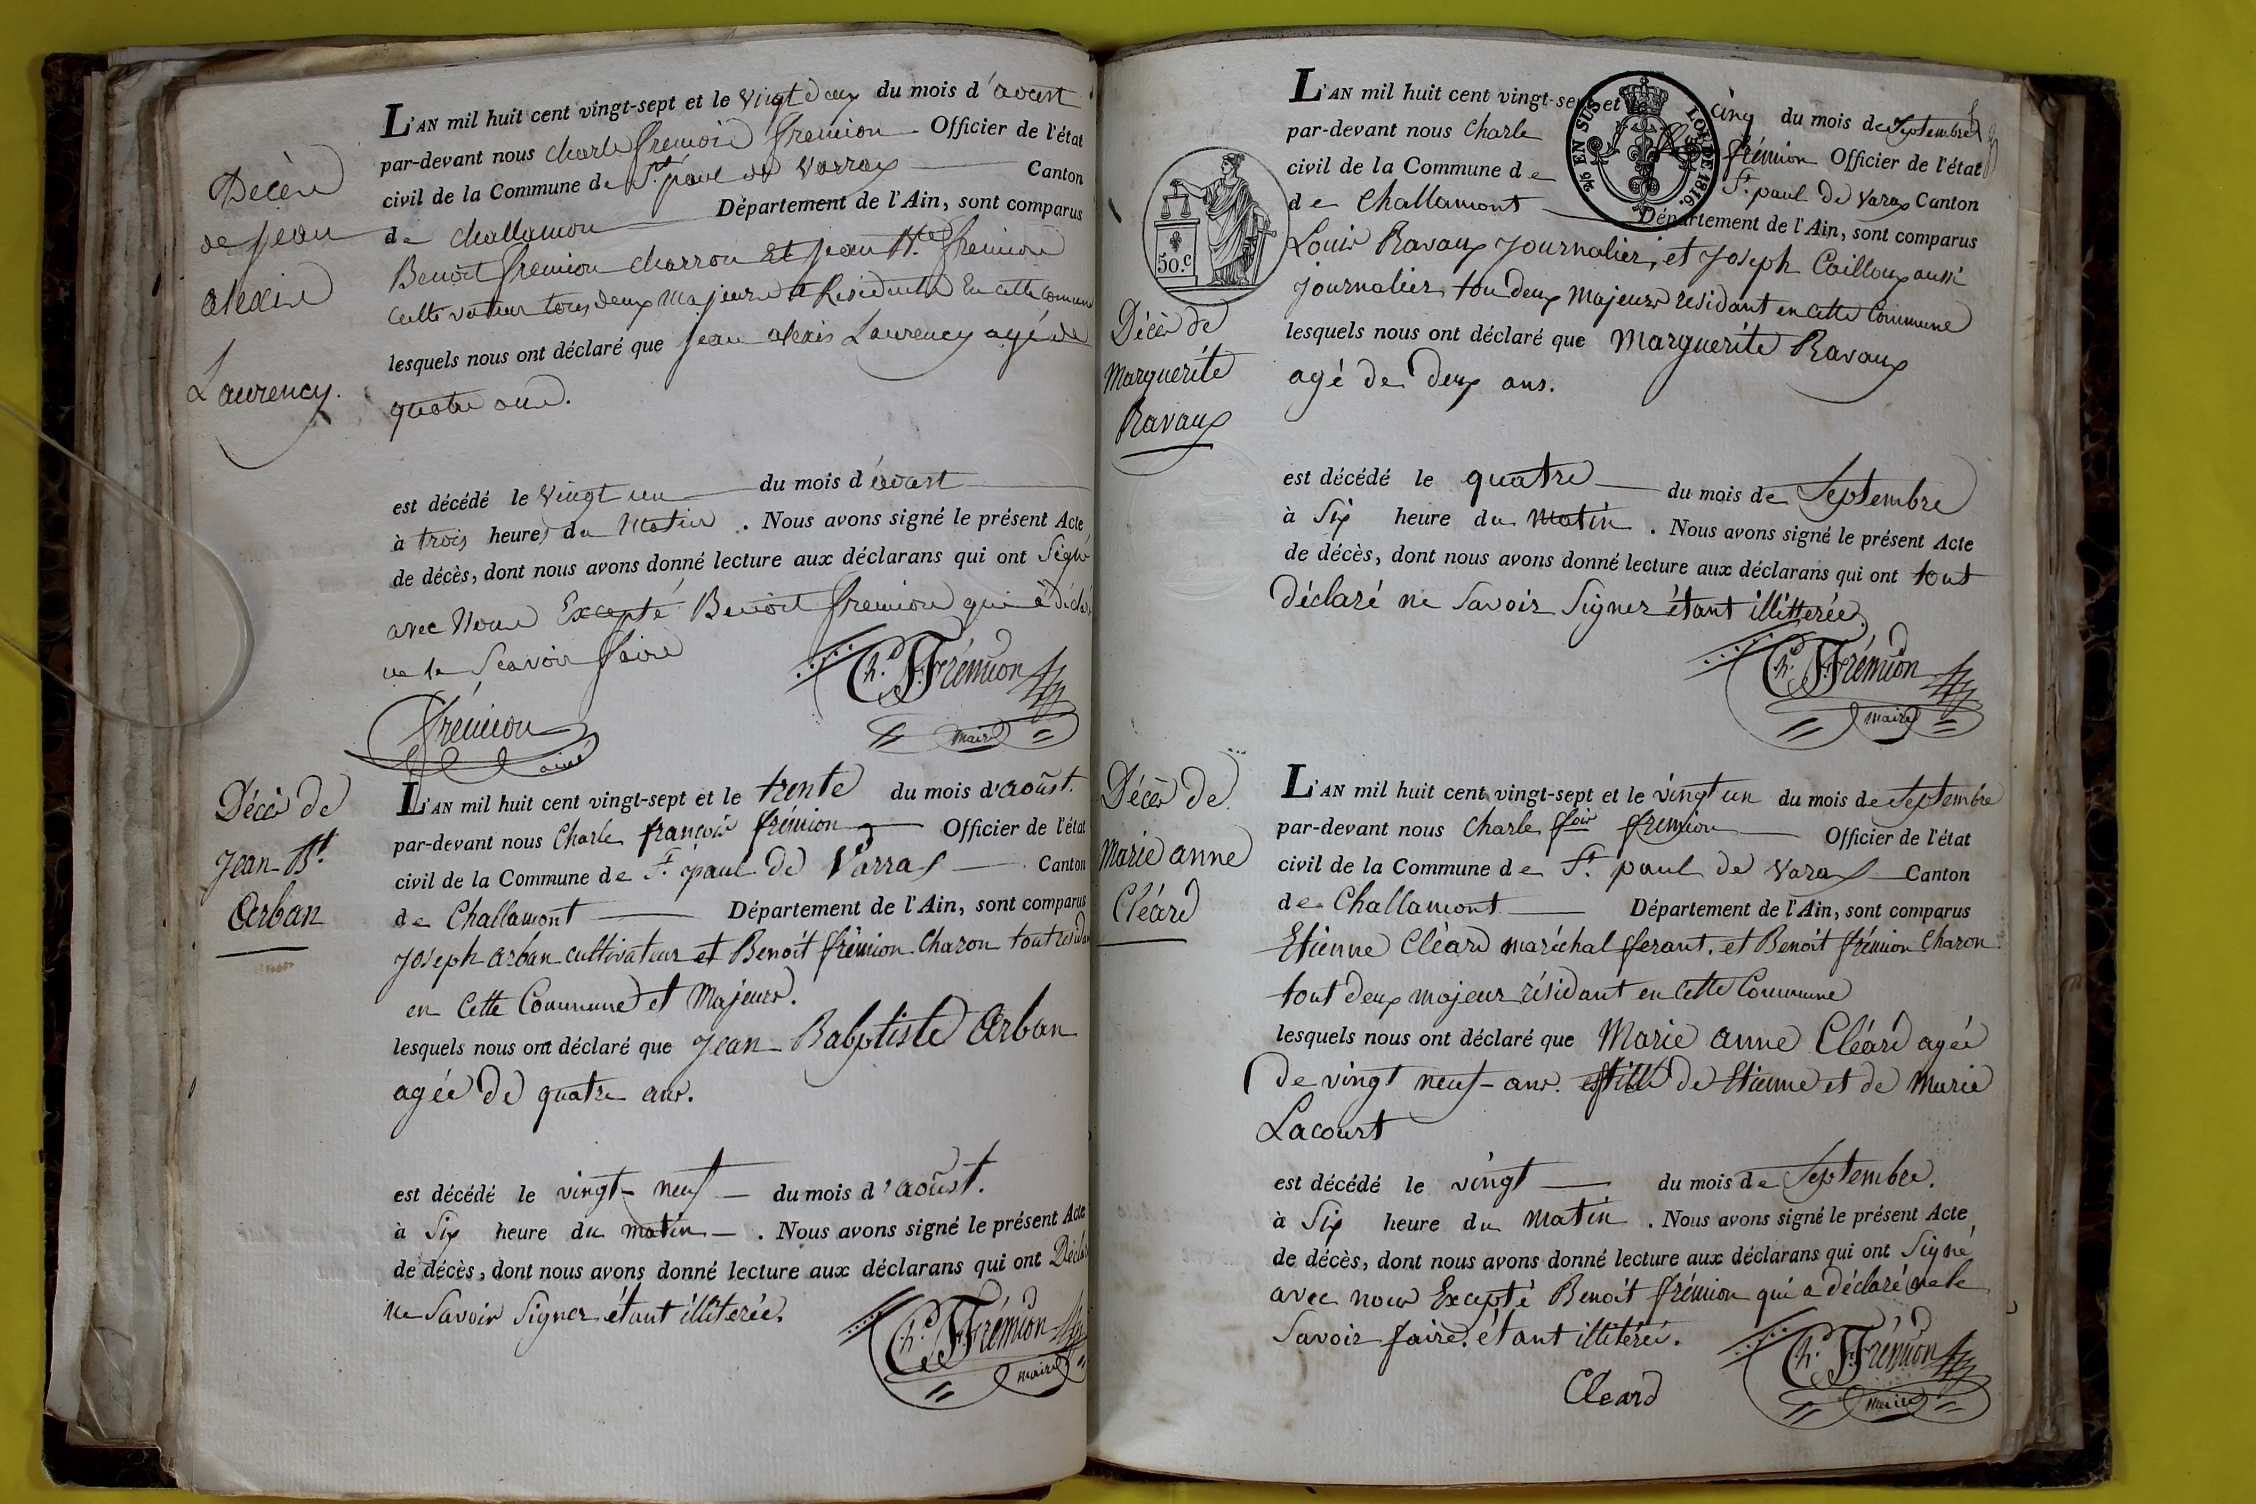 Décès
de jean
alexis
Laurency.
L'AN mil huit cent vingt-sept et le vingt deux du mois d'avout
par-devant nous charle francois fremion Officier de l'état
civil de la Commune de St. paul de Varrax Canton
de challamon Département de l'Ain, sont comparus
Benoit fremion charron Et jean Bte fremion
cultivateur tous deux majeurs et Residents En cette commune
lesquels nous ont déclaré que jean alexis Laurency agé de
quatre ans.
est décédé le vingt un du mois d'avout
à trois heures du Matin . Nous avons signé le présent Acte
de décès, dont nous avons donné lecture aux déclarans qui ont Signé
avec Nous Excepté Benoit fremion qui a déclaré
ne le Scavoir faire
Ch. F. Frémion
maire
frémion
ainé
Décès de
Jean-Bt.
Arban
L'AN mil huit cent vingt-sept et le trente du mois d'aoûst.
par-devant nous Charle françois frémion Officier de l'état
civil de la Commune de St. paul de Varras Canton
de Challamont Département de l'Ain, sont comparus
joseph arban cultivateur et Benoit frémion Charon tout résidan
en Cette Commune et Majeurs.
lesquels nous ont déclaré que Jean-Babptiste Arban
agée de quatre ans.
est décédé le vingt-neuf du mois d'aoûst.
à Six heure du matin . Nous avons signé le présent Acte
de décès, dont nous avons donné lecture aux déclarans qui ont Décla
ne Savoir Signer étant illiterée.
Ch. F. Frémion
maire
EN SUS LOI DE 1816.
50.c
Décès de
Marguerite
Ravaux
L'AN mil huit cent vingt-sept et le cinq du mois de Septembre
par-devant nous Charle frémion Officier de l'état
civil de la Commune de St. paul de Varax Canton
de Challamont Département de l'Ain, sont comparus
Louis Ravaux journalier, et joseph Cailloux aussi
journalier tou deux majeurs résidant en cette Commune
lesquels nous ont déclaré que Marguerite Ravaux
agé de deux ans.
est décédé le quatre du mois de Septembre
à Six heure du matin . Nous avons signé le présent Acte
de décès, dont nous avons donné lecture aux déclarans qui ont tout
déclaré ne Savoir Signer étant illitterée.
Ch. F. Frémion
maire
Décès de
Marie anne
Cléard
L'AN mil huit cent vingt-sept et le vingt un du mois de Septembre
par-devant nous Charle fois fremion Officier de l'état
civil de la Commune de St. paul de Varax Canton
de Challamont Département de l'Ain, sont comparus
Etienne Cléard maréchal ferant, et Benoit frémion Charon
tout deux majeur résidant en Cette Commune
lesquels nous ont déclaré que Marie anne Cléard agée
de vingt neuf ans. fille de Etienne et de Marie
Lacourt
est décédé le vingt du mois de Septembre.
à Six heure du Matin . Nous avons signé le présent Acte
de décès, dont nous avons donné lecture aux déclarans qui ont Signé
avec nous Excepté Benoit frémion qui a déclaré ne le
Savoir faire. étant illitéréé.
Cleard
Ch. F. Frémion
Maire